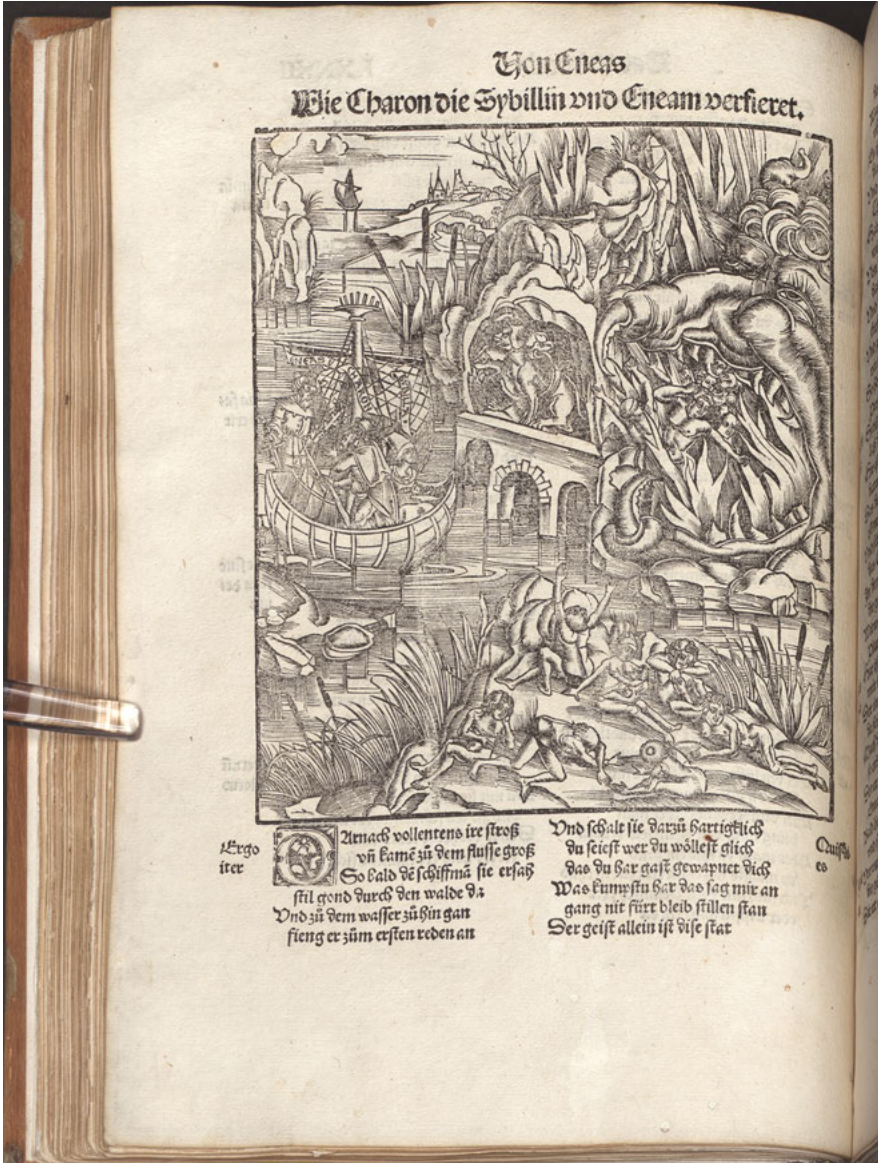 Von Eneas
Wie Charon die Sybillin vnd Eneam verfieret.
Ergo
iter
DArnach vollentens ire stroß
vñ kamẽ zů dem flusse groß
So bald dẽ schiffmã sie ersah
stil gond durch den walde da
Vnd zů dem wasser zů hin gan
fieng er zům ersten reden an
Vnd schalt sie darzů hartigklich
du seiest wer du wöllest glich
das du har gast gewapnet dich
Was kumpstu har das sag mir an
gang nit fürt bleib stillen stan
Der geist allein ist dise stat
es